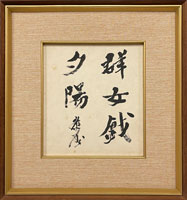 群女戯
夕陽